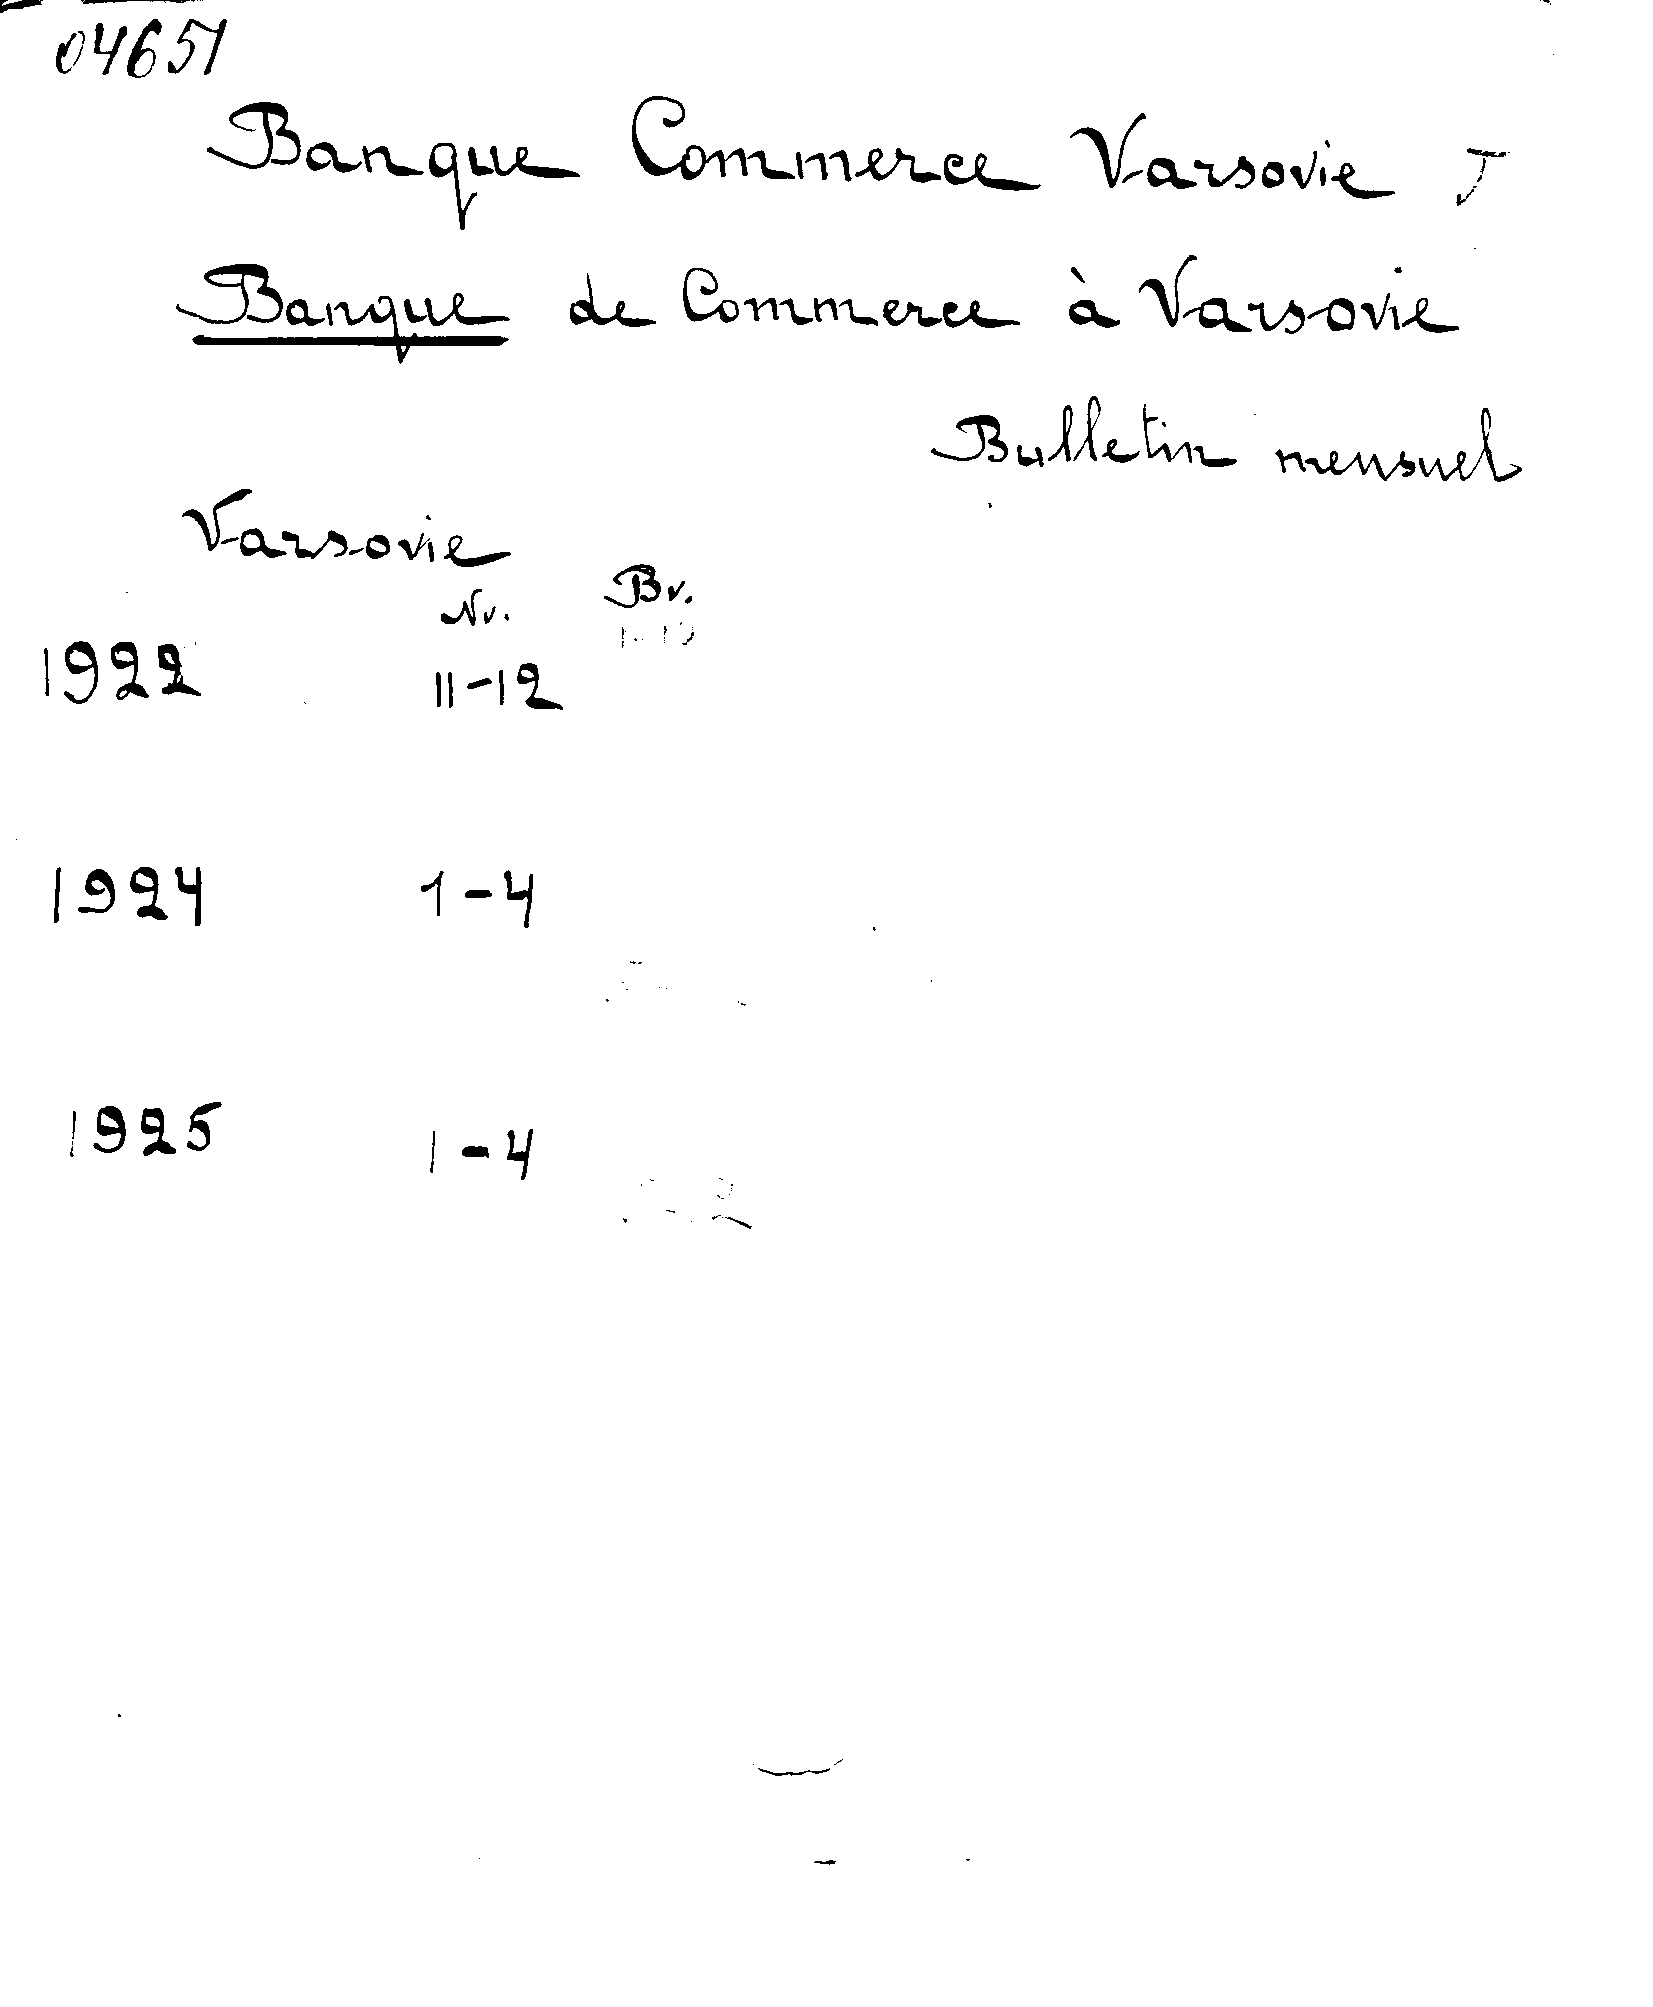 04651
Banque Commerce Varsovie J
Banque de Commerce à Varsovie
Bulletin mensuel
Varsovie
Nr. Br.
1922 11-12
1924 1-4
1925 1-4